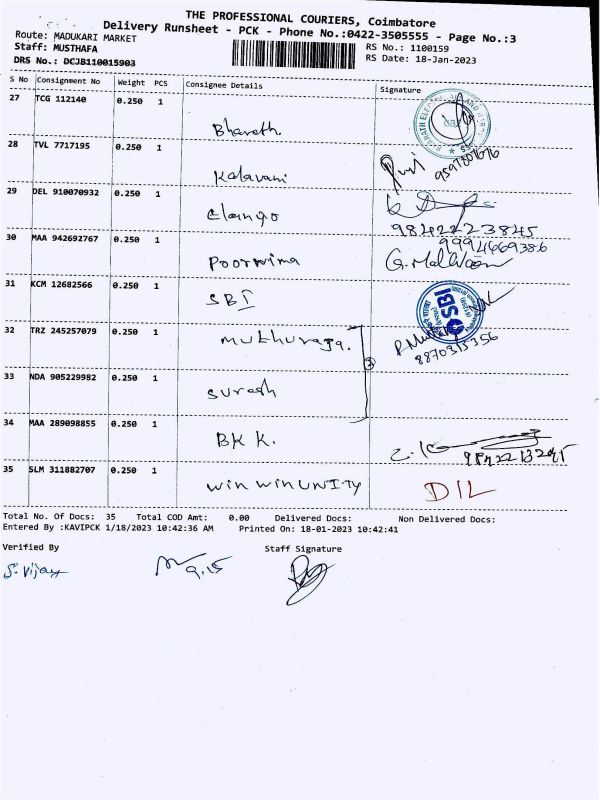 THE PROFESSIONAL COURIERS, Coimbatore
Delivery Runsheet - PCK - Phone No.:0422-3505555 - Page No.:3
Route: MADUKARI MARKET
RS No.: 1100159
Staff: MUSTHAFA
RS Date: 18-Jan-2023
DRS No.: DCJB110015903
S No Consignment No Weight PCS Consignee Details Signature
27 TCG 112140 0.250 1 Bharath
28 TVL 7717195 0.250 1 Kalavani
29 DEL 910070932 0.250 1 Elango
9842223845
30 MAA 942692767 0.250 1 Poornima
9994669386
31 KCM 12682566 0.250 1 SBI
SBI
32 TRZ 245257079 0.250 1 Muthuraja.
8870315356
33 NDA 905229982 0.250 1 Suresh
34 MAA 289098855 0.250 1 BKK.
35 SLM 311882707 0.250 1 Win Win UNITY DIL
Total No. Of Docs: 35 Total COD Amt: 0.00 Delivered Docs: Non Delivered Docs:
Entered By :KAVIPCK 1/18/2023 10:42:36 AM Printed On: 18-01-2023 10:42:41
Verified By Staff Signature
S. Vijay 9.15